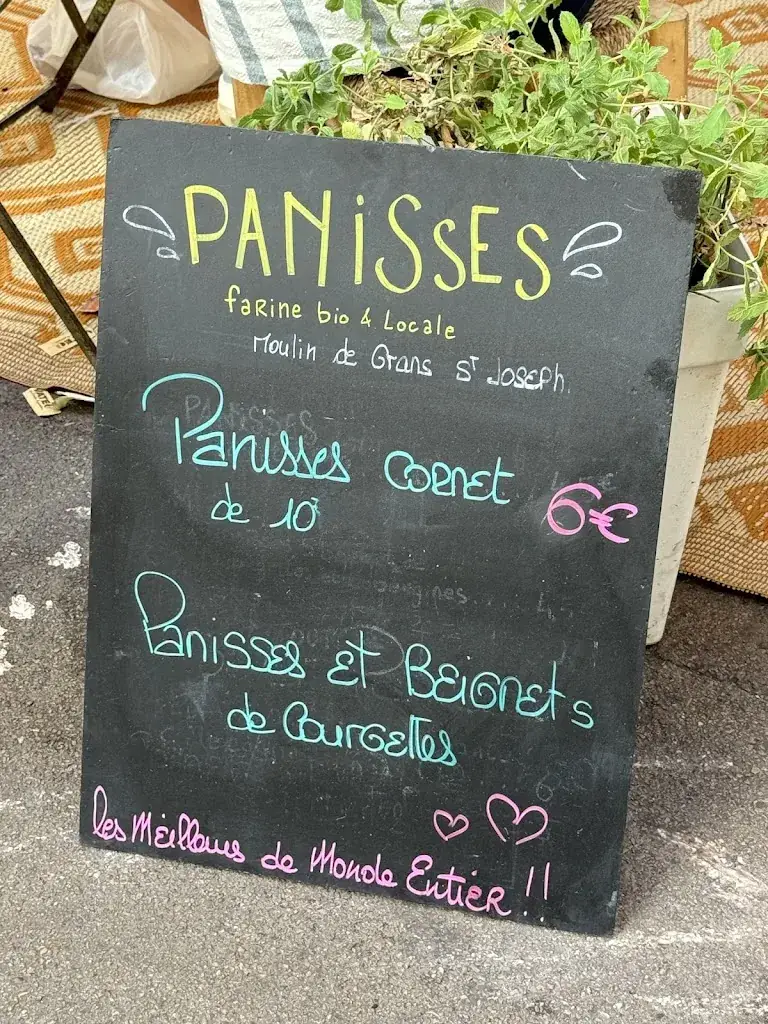 PANisSES
faRine bio & Locale
Moulin de Grans St JOSEPh.
Panisses CORNET 6€
de 10
Panisses Et BEiGNEts
de CourGEttes
les MEilleurs de Monde EntiER !!